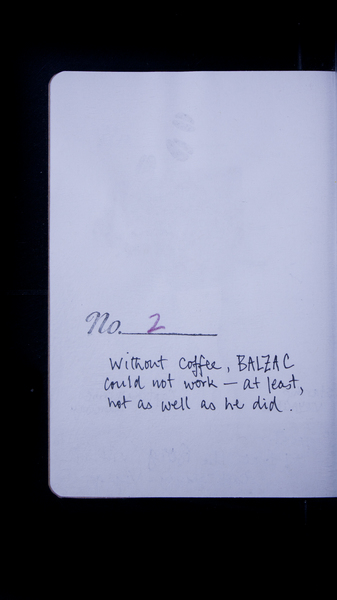 No. 2
Without coffee, BALZAC
could not work – at least,
not as well as he did.